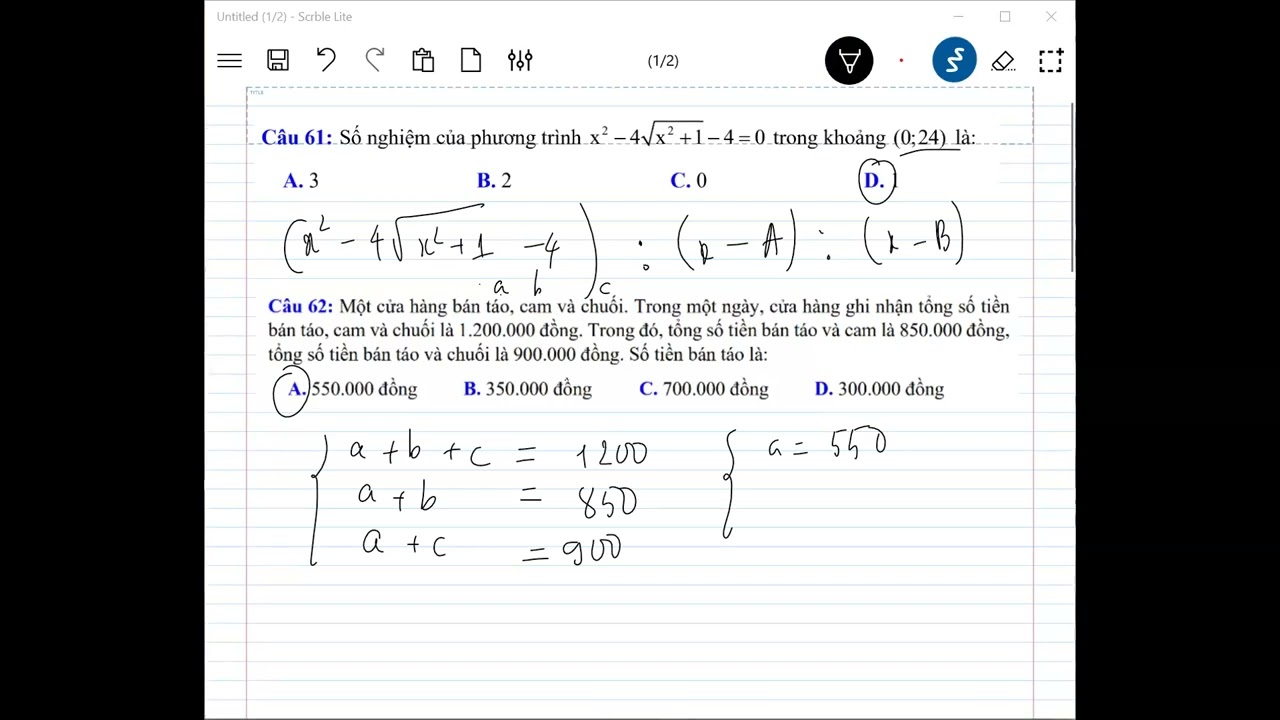 Untitled (1/2) - Scrble Lite
(1/2)
TITLE
Câu 61: Số nghiệm của phương trình x² − 4√(x² + 1) − 4 = 0 trong khoảng (0;24) là:
A. 3 B. 2 C. 0 D. 1
(x² − 4√(x² + 1) − 4) : (x − A) : (x − B)
a b c
Câu 62: Một cửa hàng bán táo, cam và chuối. Trong một ngày, cửa hàng ghi nhận tổng số tiền
bán táo, cam và chuối là 1.200.000 đồng. Trong đó, tổng số tiền bán táo và cam là 850.000 đồng,
tổng số tiền bán táo và chuối là 900.000 đồng. Số tiền bán táo là:
A. 550.000 đồng B. 350.000 đồng C. 700.000 đồng D. 300.000 đồng
a + b + c = 1200 a = 550
a + b = 850
a + c = 900